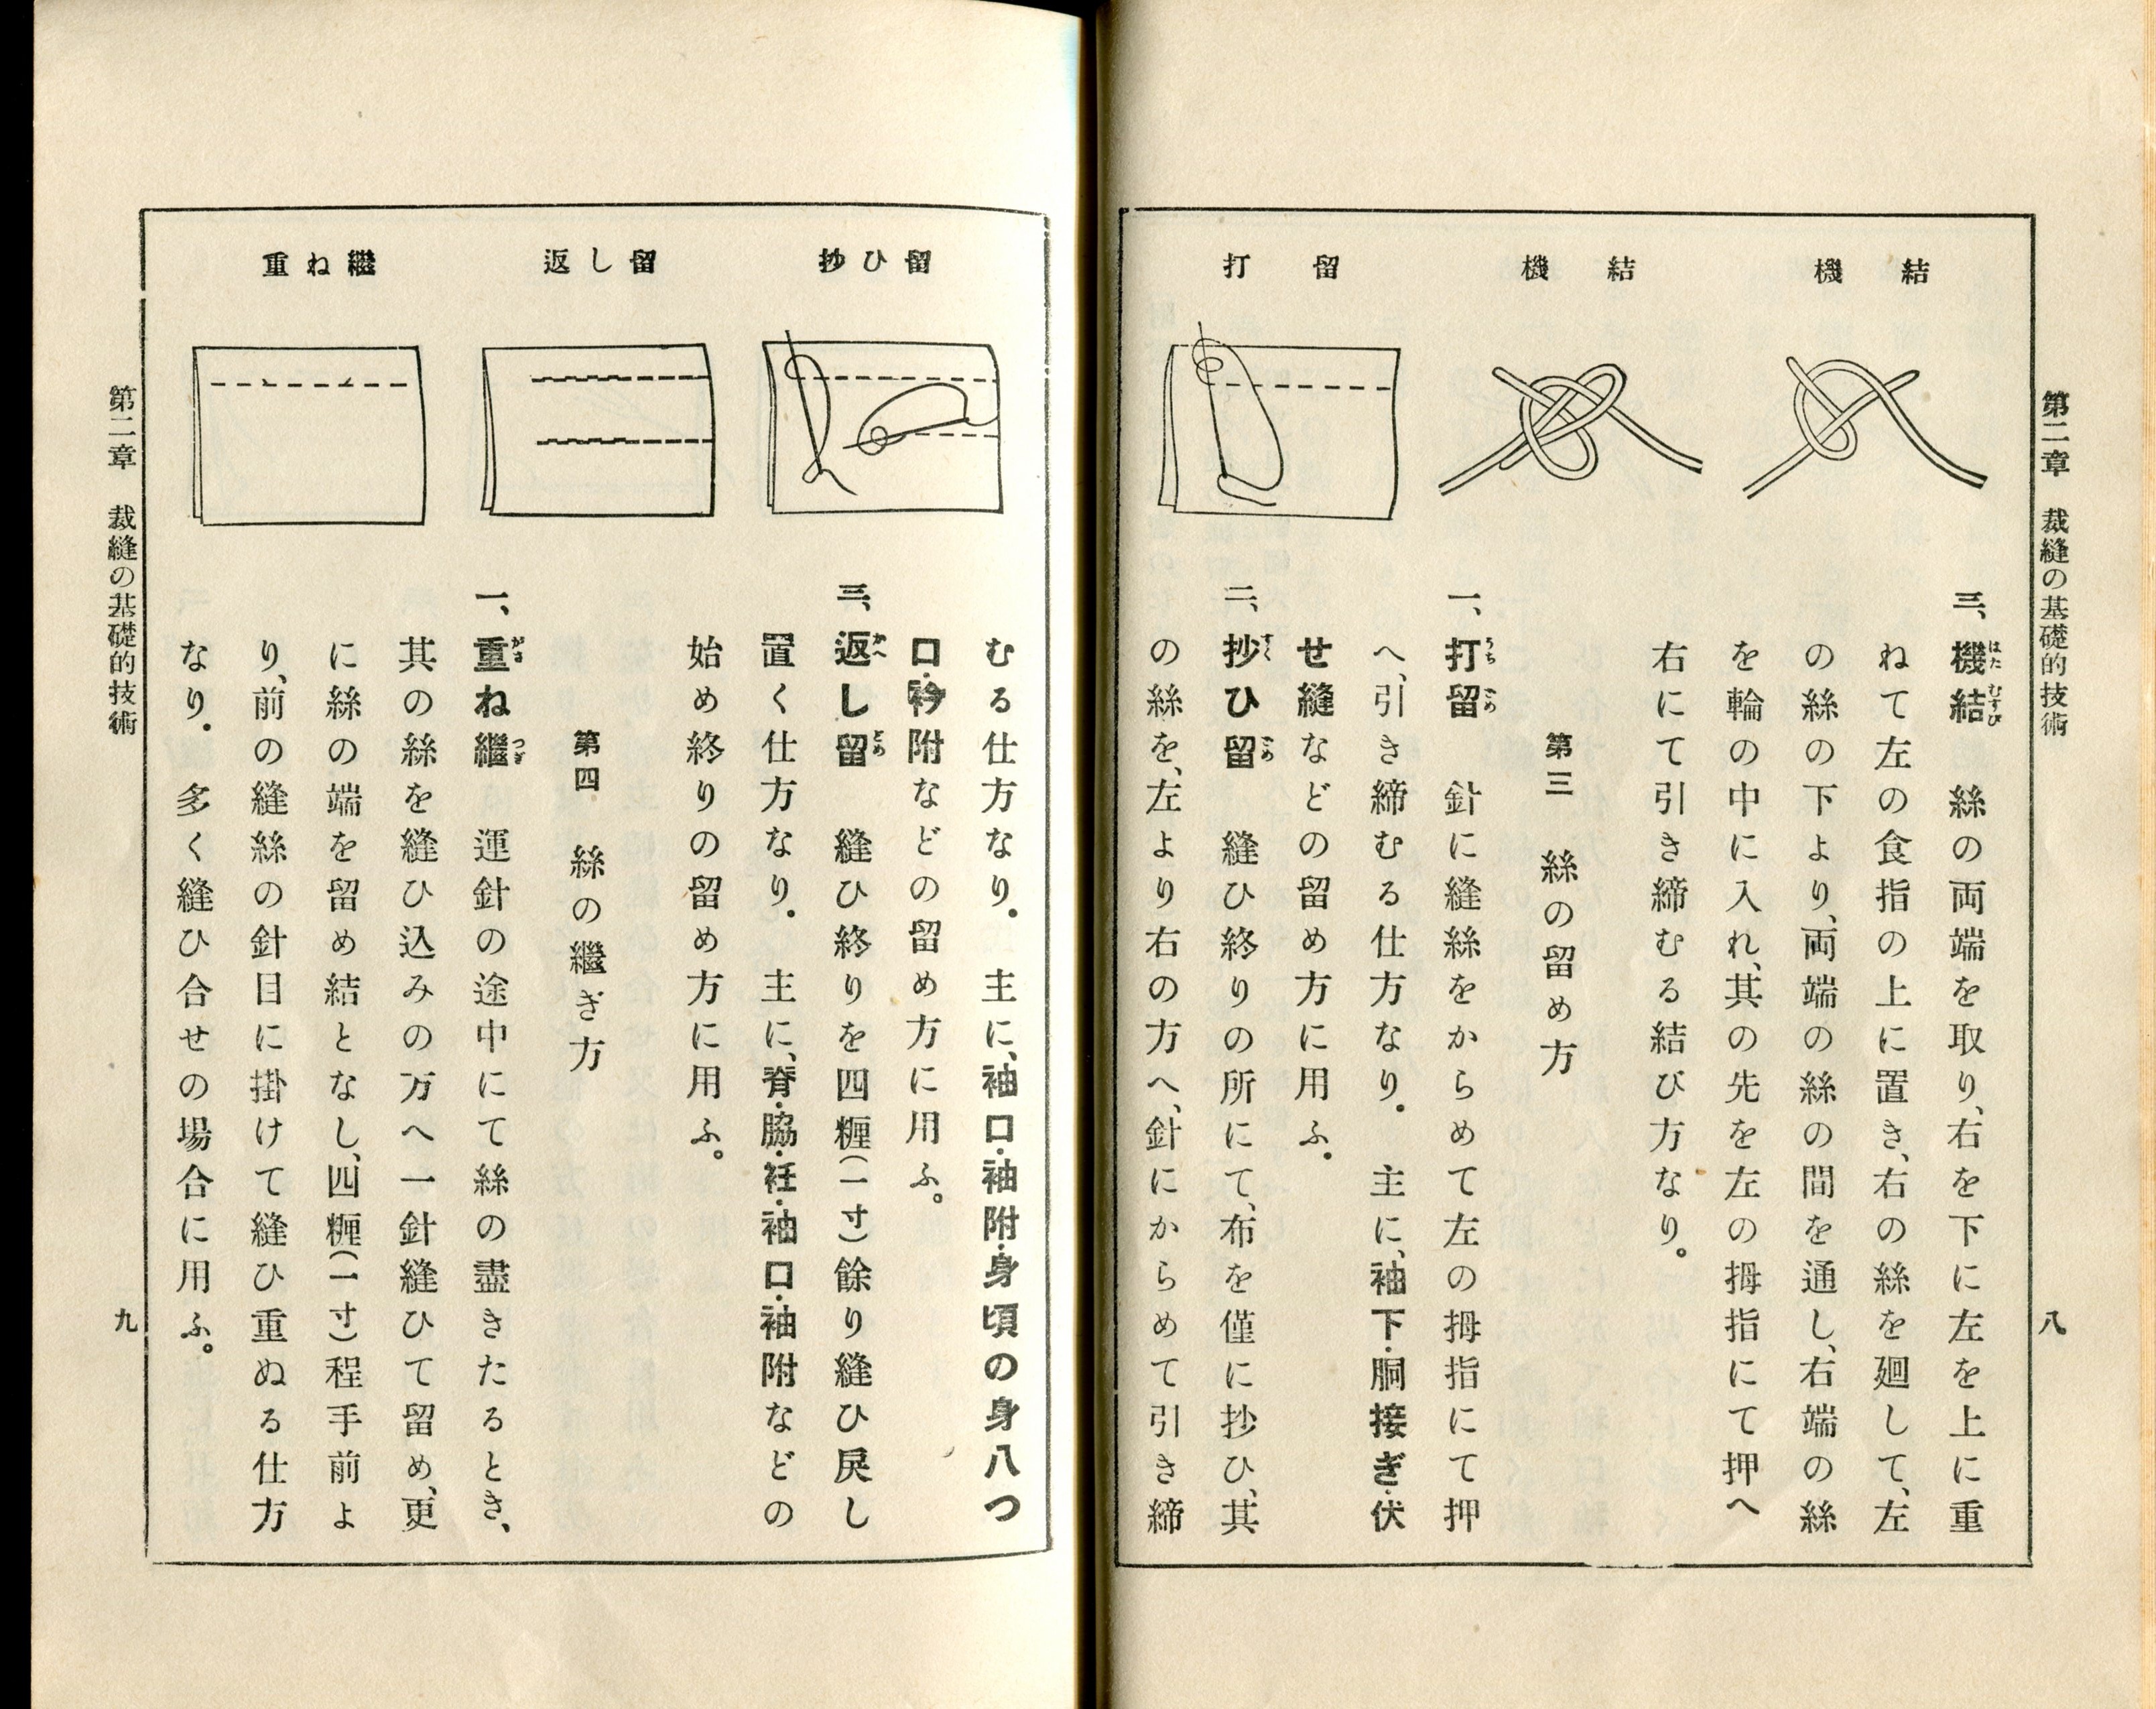 第二章　裁縫の基礎的技術
八
機結
機結
打留
三、機結　絲の両端を取り、右を下に左を上に重
ねて左の食指の上に置き、右の絲を廻して、左
の絲の下より、両端の絲の間を通し、右端の絲
を輪の中に入れ、其の先を左の拇指にて押へ
右にて引き締むる結び方なり。
第三　絲の留め方
一、打留　針に縫絲をからめて左の拇指にて押
へ、引き締むる仕方なり。　主に、袖下・胴接ぎ・伏
せ縫などの留め方に用ふ。
二、抄ひ留　縫ひ終りの所にて、布を僅に抄ひ、其
の絲を、左より右の方へ、針にからめて引き締
抄ひ留
返し留
重ね繼
むる仕方なり。　主に、袖口・袖附・身頃の身八つ
口・衿附などの留め方に用ふ。
三、返し留　縫ひ終りを四糎（一寸）餘り縫ひ戻し
置く仕方なり。　主に、脊・脇・衽・袖口・袖附などの
始め終りの留め方に用ふ。
第四　絲の繼ぎ方
一、重ね繼　運針の途中にて絲の盡きたるとき、
其の絲を縫ひ込みの方へ一針縫ひて留め、更
に絲の端を留め結となし、四糎（一寸）程手前よ
り、前の縫絲の針目に掛けて縫ひ重ぬる仕方
なり。　多く縫ひ合せの場合に用ふ。
第二章　裁縫の基礎的技術
九